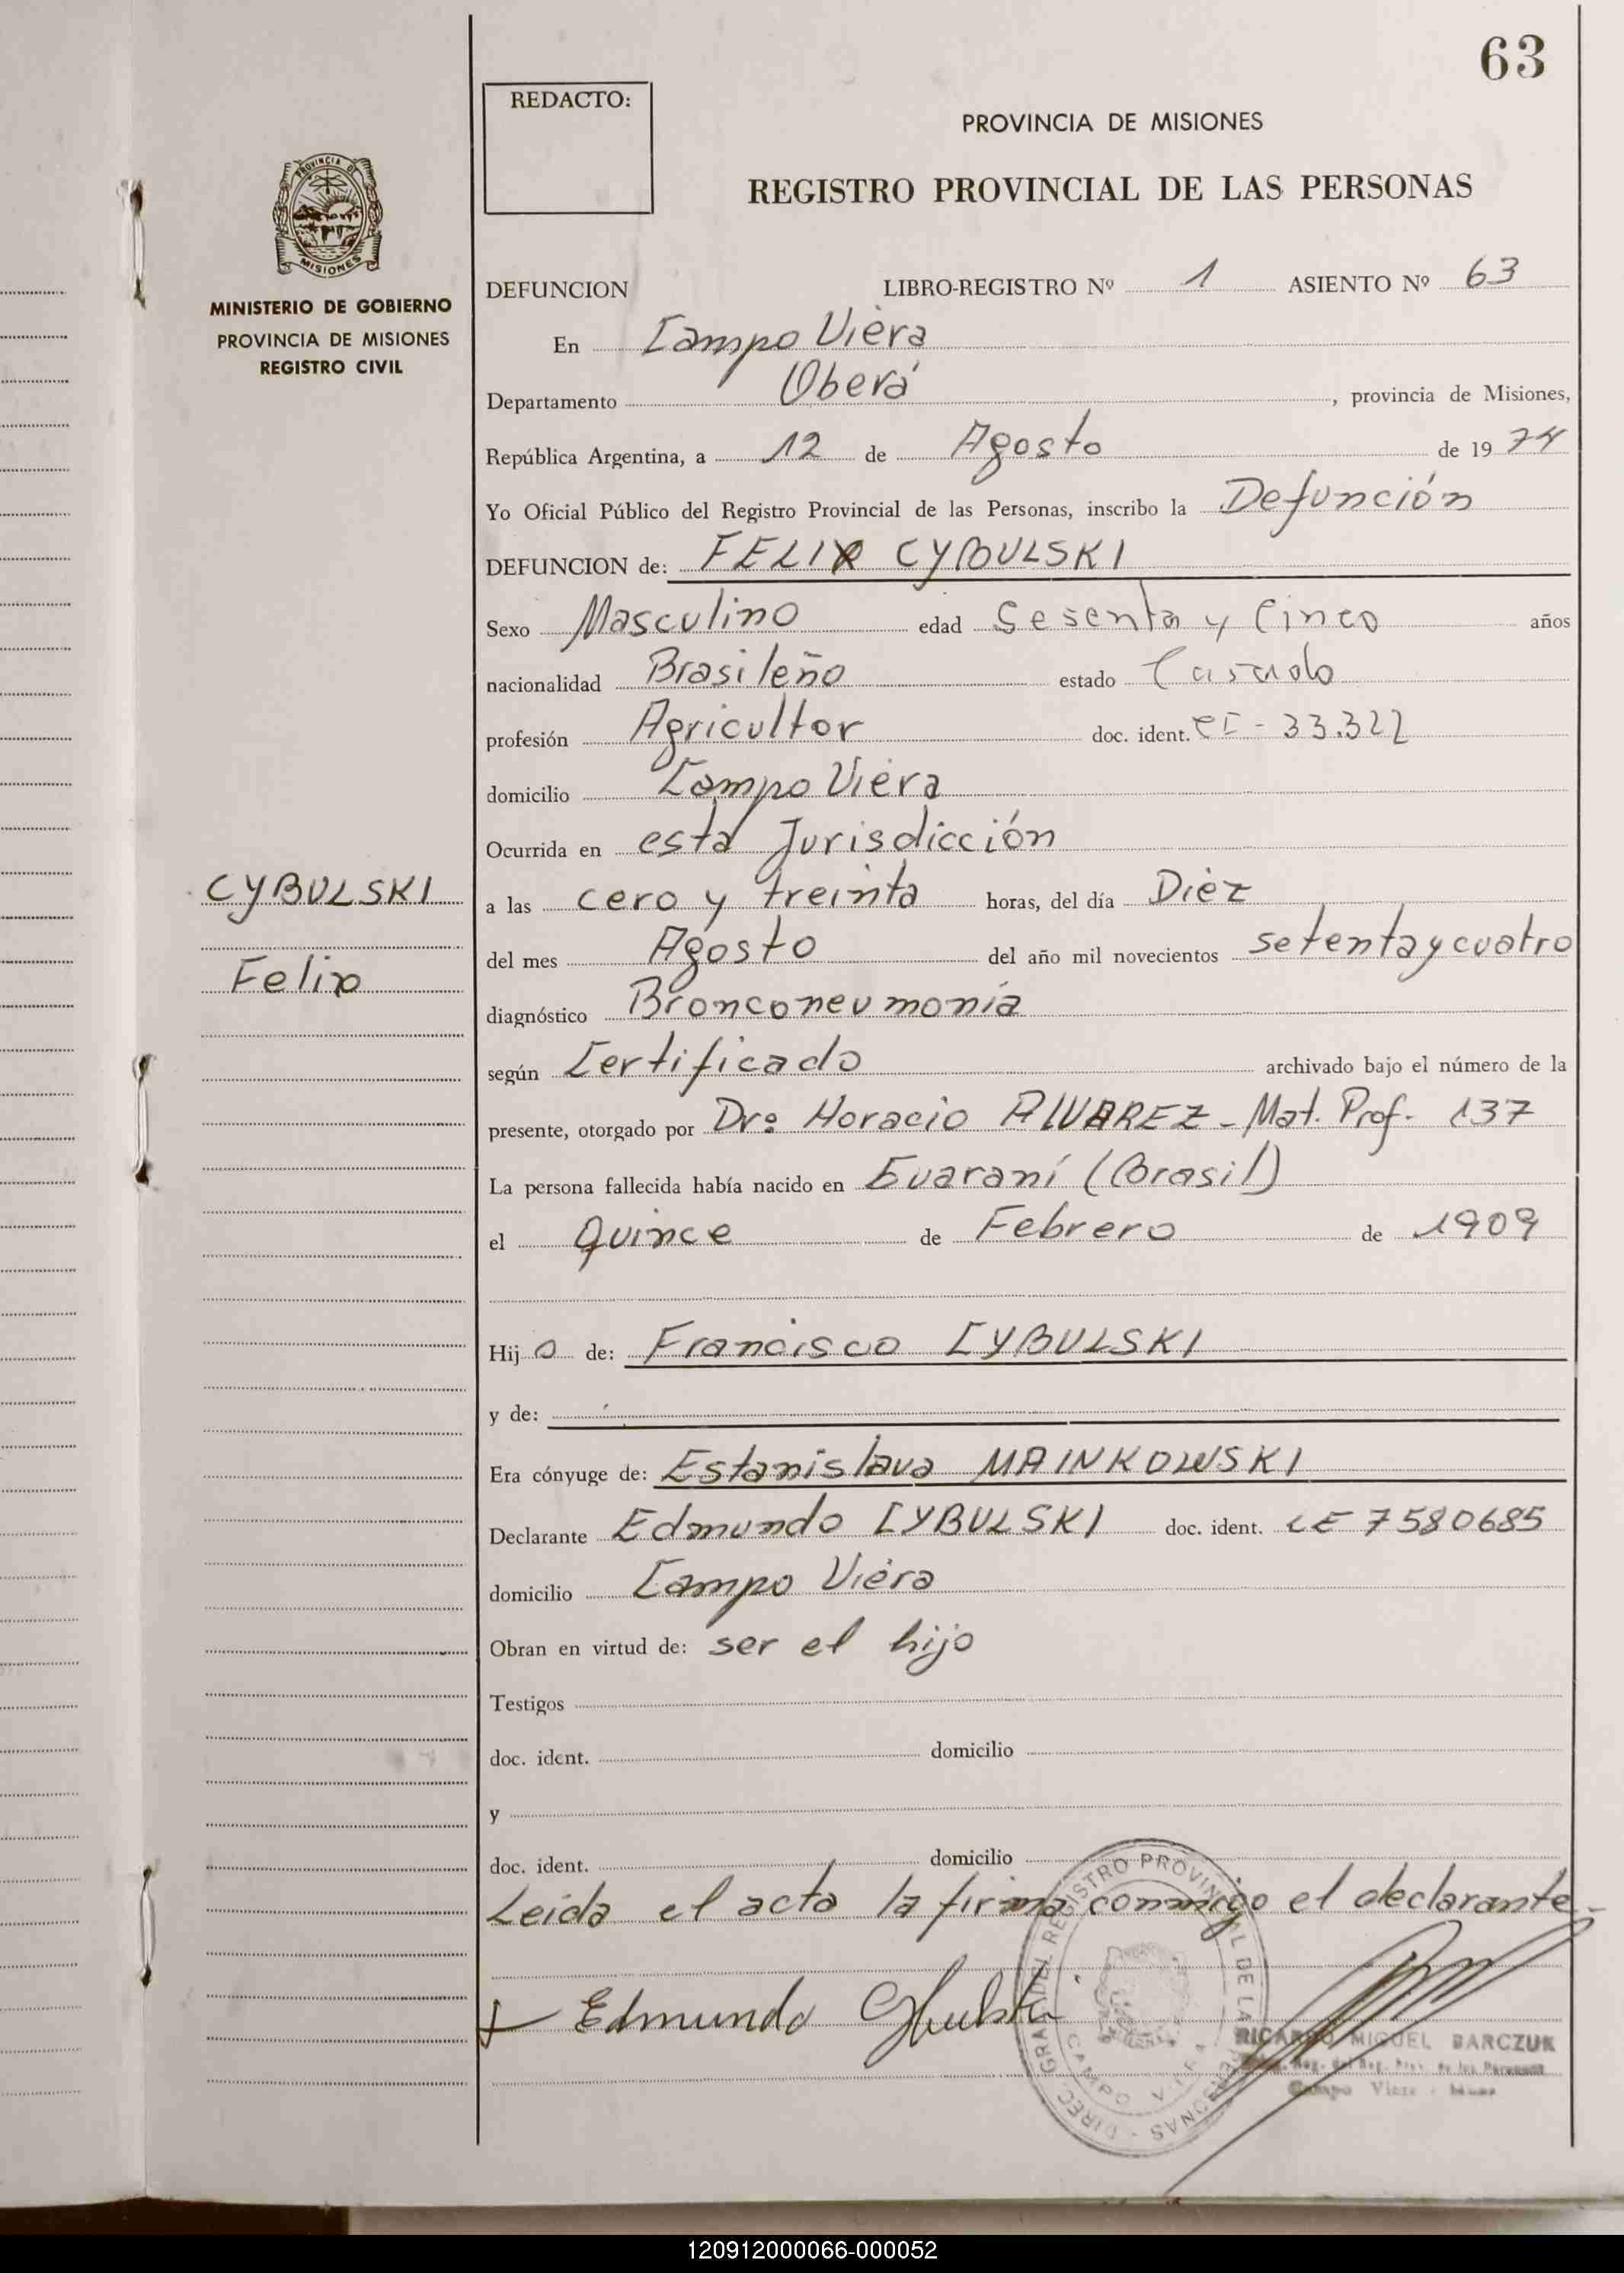 63
REDACTO:
PROVINCIA DE MISIONES
REGISTRO PROVINCIAL DE LAS PERSONAS
PROVINCIA DE
MISIONES
MINISTERIO DE GOBIERNO
PROVINCIA DE MISIONES
REGISTRO CIVIL
DEFUNCION LIBRO-REGISTRO Nº 1 ASIENTO Nº 63
En Campo Viera
Departamento Oberá, provincia de Misiones,
República Argentina, a 12 de Agosto de 1974
Yo Oficial Público del Registro Provincial de las Personas, inscribo la Defunción
DEFUNCION de: FELIX CYBULSKI
Sexo Masculino edad Sesenta y Cinco años
nacionalidad Brasileño estado Casado
profesión Agricultor doc. ident. CI - 33.322
domicilio Campo Viera
Ocurrida en esta Jurisdicción
CYBULSKI
Felix
a las cero y treinta horas, del día Diez
del mes Agosto del año mil novecientos setenta y cuatro
diagnóstico Bronconeumonía
según Certificado archivado bajo el número de la
presente, otorgado por Dr. Horacio ALVAREZ - Mat. Prof. 137
La persona fallecida había nacido en Guaraní (Brasil)
el Quince de Febrero de 1909
Hijo de: Francisco CYBULSKI
y de:
Era cónyuge de: Estanislava MAINKOWSKI
Declarante Edmundo CYBULSKI doc. ident. LE 7580685
domicilio Campo Viera
Obran en virtud de: ser el hijo
Testigos
doc. ident. domicilio
y
doc. ident. domicilio
Leida el acta la firma conmigo el declarante.-
Edmundo
DIREC. GRAL. DEL REGISTRO PROVINCIAL DE LAS PERSONAS
CAMPO VIERA
RICARDO MIGUEL BARCZUK
Reg. del Reg. Prov. de las Personas
Campo Viera - Mnes
120912000066-000052